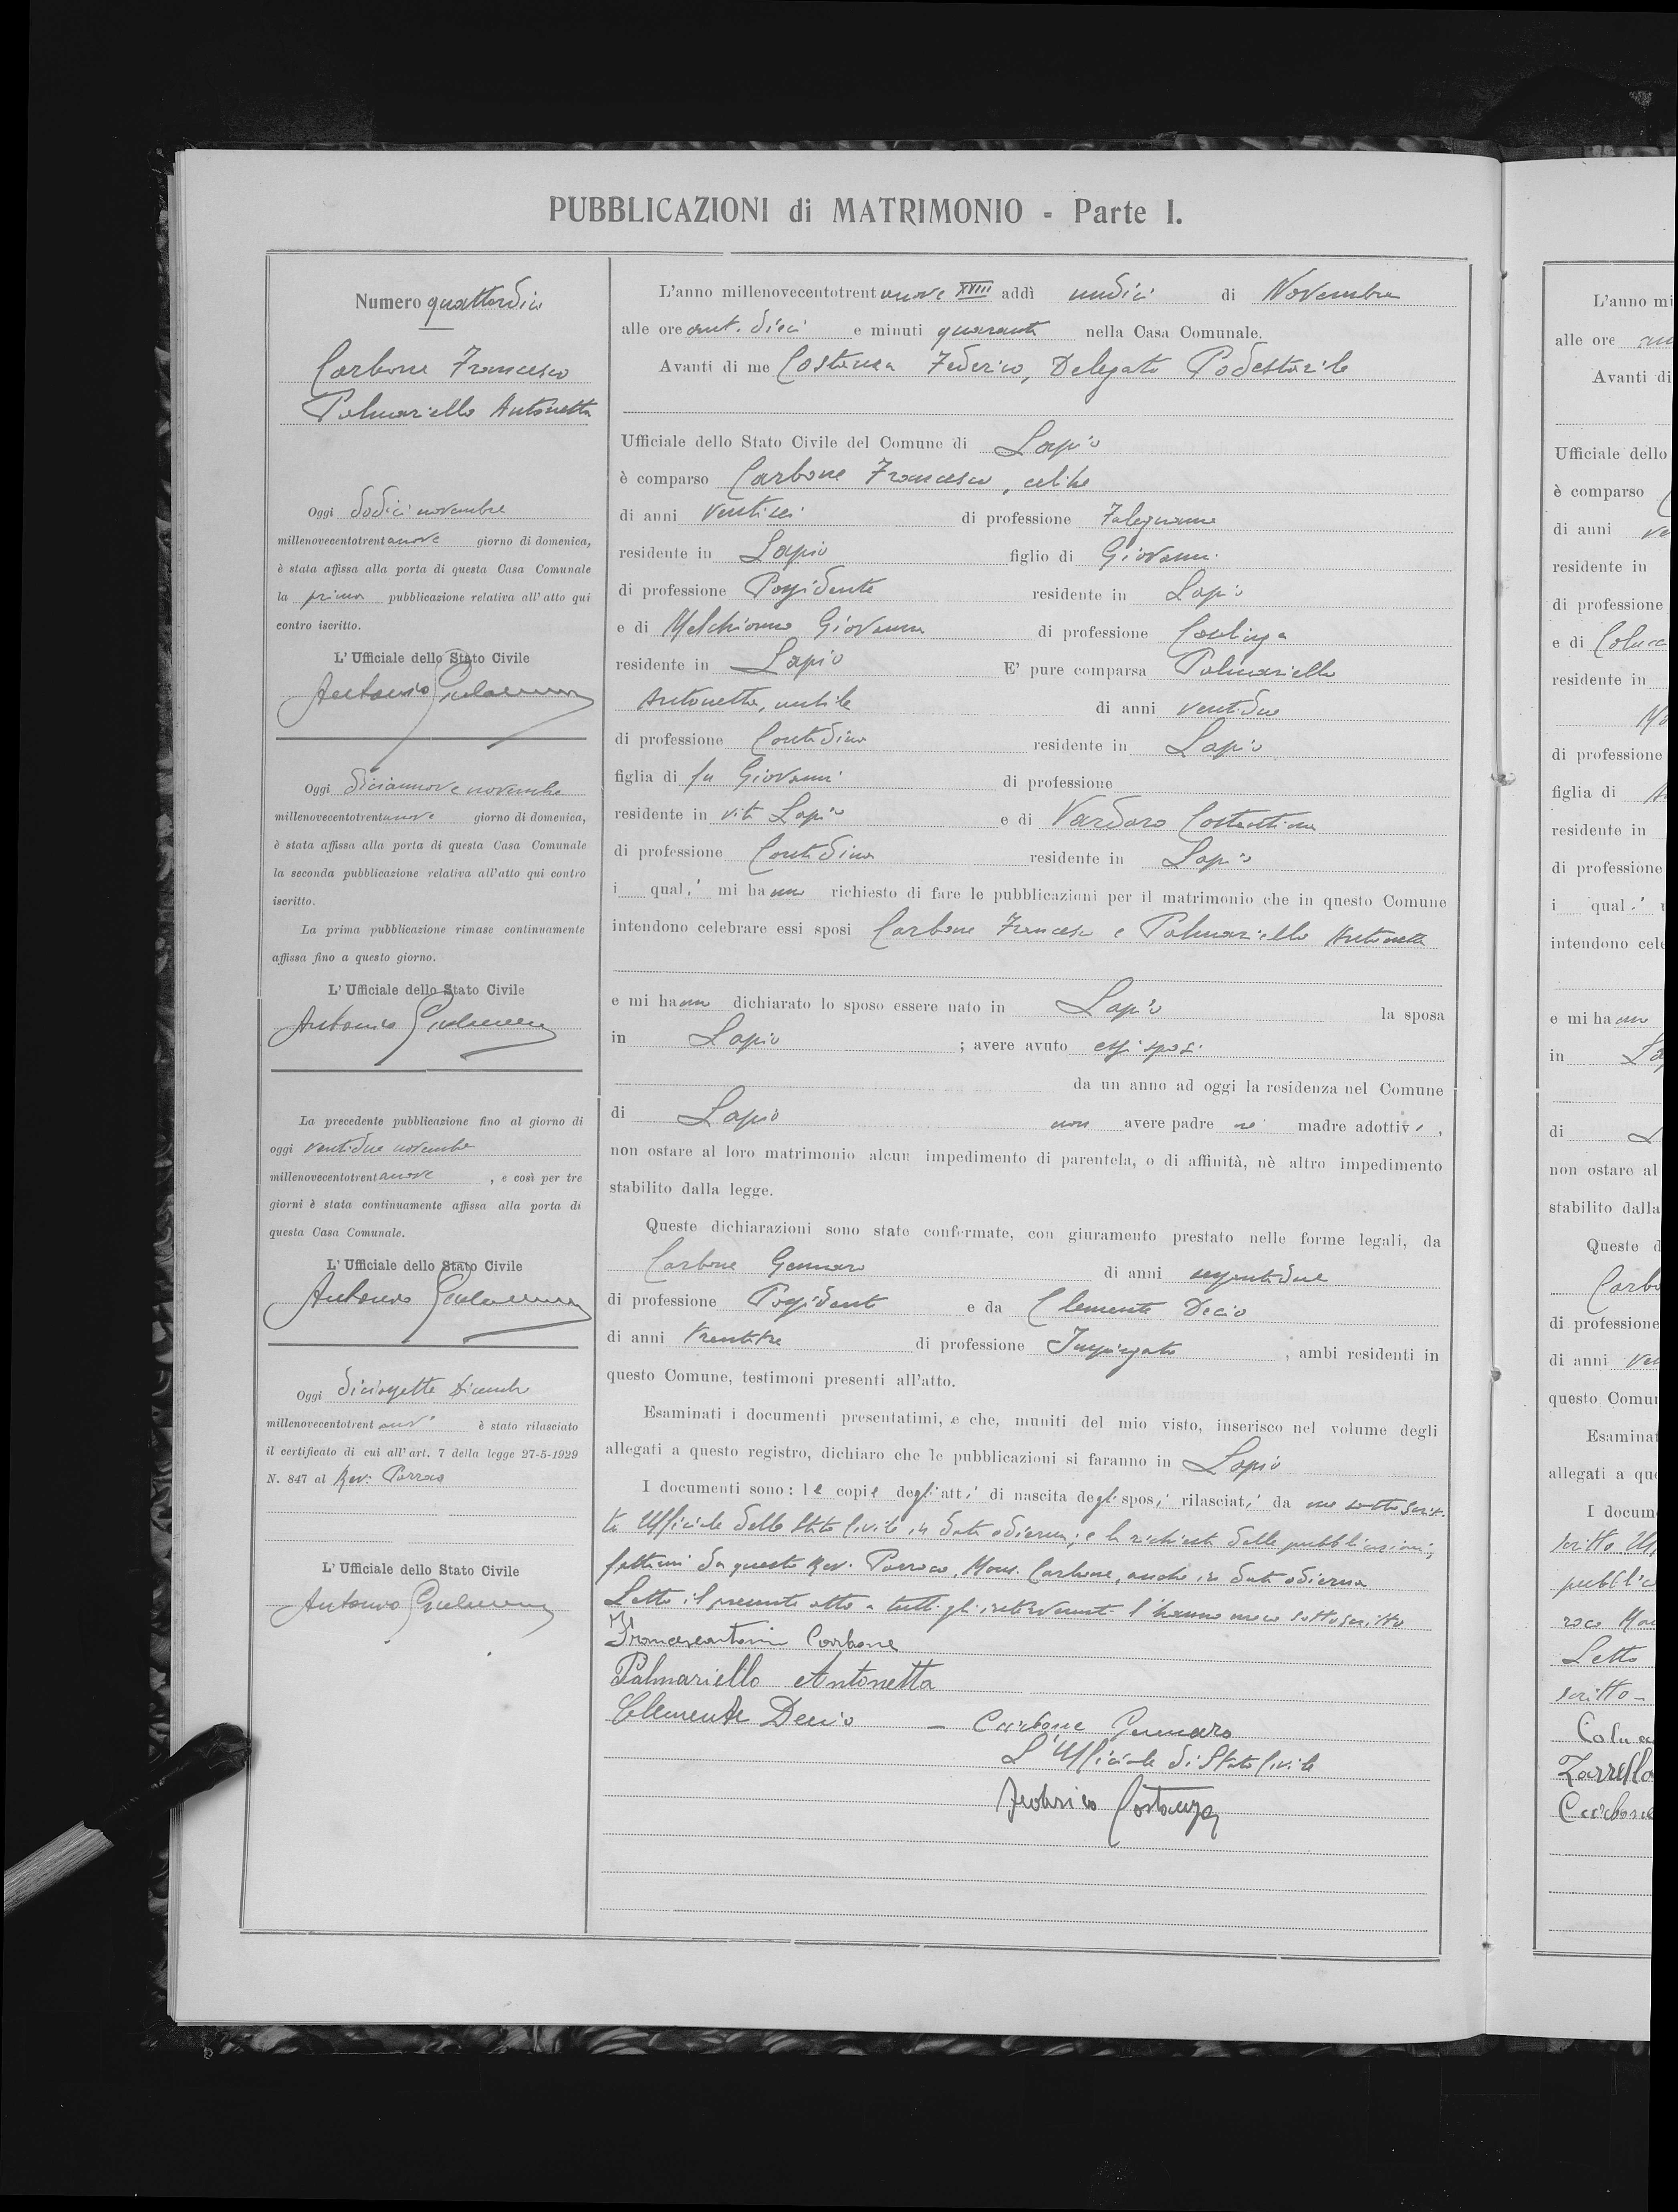 PUBBLICAZIONI di MATRIMONIO - Parte I.
Numero quattordici
Carbone Francesco
Palmariello Antonetta
Oggi dodici novembre
millenovecentotrentanove giorno di domenica,
è stata affissa alla porta di questa Casa Comunale
la prima pubblicazione relativa all'atto qui
contro iscritto.
L'Ufficiale dello Stato Civile
Antonio
Oggi diciannove novembre
millenovecentotrentanove giorno di domenica,
è stata affissa alla porta di questa Casa Comunale
la seconda pubblicazione relativa all'atto qui contro
iscritto.
La prima pubblicazione rimase continuamente
affissa fino a questo giorno.
L'Ufficiale dello Stato Civile
Antonio
La precedente pubblicazione fino al giorno di
oggi ventidue novembre
millenovecentotrentanove, e così per tre
giorni è stata continuamente affissa alla porta di
questa Casa Comunale.
L'Ufficiale dello Stato Civile
Antonio
Oggi diciassette Dicembre
millenovecentotrent è stato rilasciato
il certificato di cui all'art. 7 della legge 27-5-1929
N. 847 al Rev: Parroco
L'Ufficiale dello Stato Civile
Antonio
L'anno millenovecentotrentanove XVIII addì undici di Novembre
alle ore ant. dieci e minuti quaranta nella Casa Comunale.
Avanti di me Costanza Federico, Delegato Podestarile
Ufficiale dello Stato Civile del Comune di Lapio
è comparso Carbone Francesco, celibe
di anni ventisei di professione Falegname
residente in Lapio figlio di Giovanni
di professione Possidente residente in Lapio
e di Melchionno Giovanna di professione Casalinga
residente in Lapio E' pure comparsa Palmariello
Antonetta, nubile di anni ventidue
di professione Contadina residente in Lapio
figlia di fu Giovanni di professione
residente in vita Lapio e di Vardaro Costantina
di professione Contadina residente in Lapio
i quali mi hanno richiesto di fare le pubblicazioni per il matrimonio che in questo Comune
intendono celebrare essi sposi Carbone Francesco e Palmariello Antonetta
e mi hanno dichiarato lo sposo essere nato in Lapio la sposa
in Lapio ; avere avuto essi sposi
da un anno ad oggi la residenza nel Comune
di Lapio non avere padre nè madre adottivi,
non ostare al loro matrimonio alcun impedimento di parentela, o di affinità, nè altro impedimento
stabilito dalla legge.
Queste dichiarazioni sono state confermate, con giuramento prestato nelle forme legali, da
Carbone Gennaro di anni sessantadue
di professione Possidente e da Clemente Decio
di anni trentatre di professione Impiegato, ambi residenti in
questo Comune, testimoni presenti all'atto.
Esaminati i documenti presentatimi, e che, muniti del mio visto, inserisco nel volume degli
allegati a questo registro, dichiaro che le pubblicazioni si faranno in Lapio
I documenti sono: le copie degli atti di nascita degli sposi rilasciati da me sottoscrit-
to Ufficiale dello Stato Civile in data odierna; e la richiesta delle pubblicazioni,
fattami da questo Rev. Parroco, Mons. Carbone, anche in data odierna
Letto il presente atto a tutti gli intervenuti l'hanno meco sottoscritto
Francescantonio Carbone
Palmariello Antonetta
Clemente Decio - Carbone Gennaro
L'Ufficiale di Stato Civile
Federico Costanza
L'anno mi
alle ore
Avanti di
Ufficiale dello
è comparso
di anni ve
residente in
di professione
e di Colucc
residente in
di professione
figlia di
residente in
di professione
i quali
intendono cele
e mi hanno
in La
di L
non ostare al
stabilito dalla
Queste d
Carbo
di professione
di anni Ven
questo Comun
Esaminat
allegati a que
I docum
scritto Uf
pubblic
roco Mon
Letto
scritto -
Coluc
Zarrella
Carbone